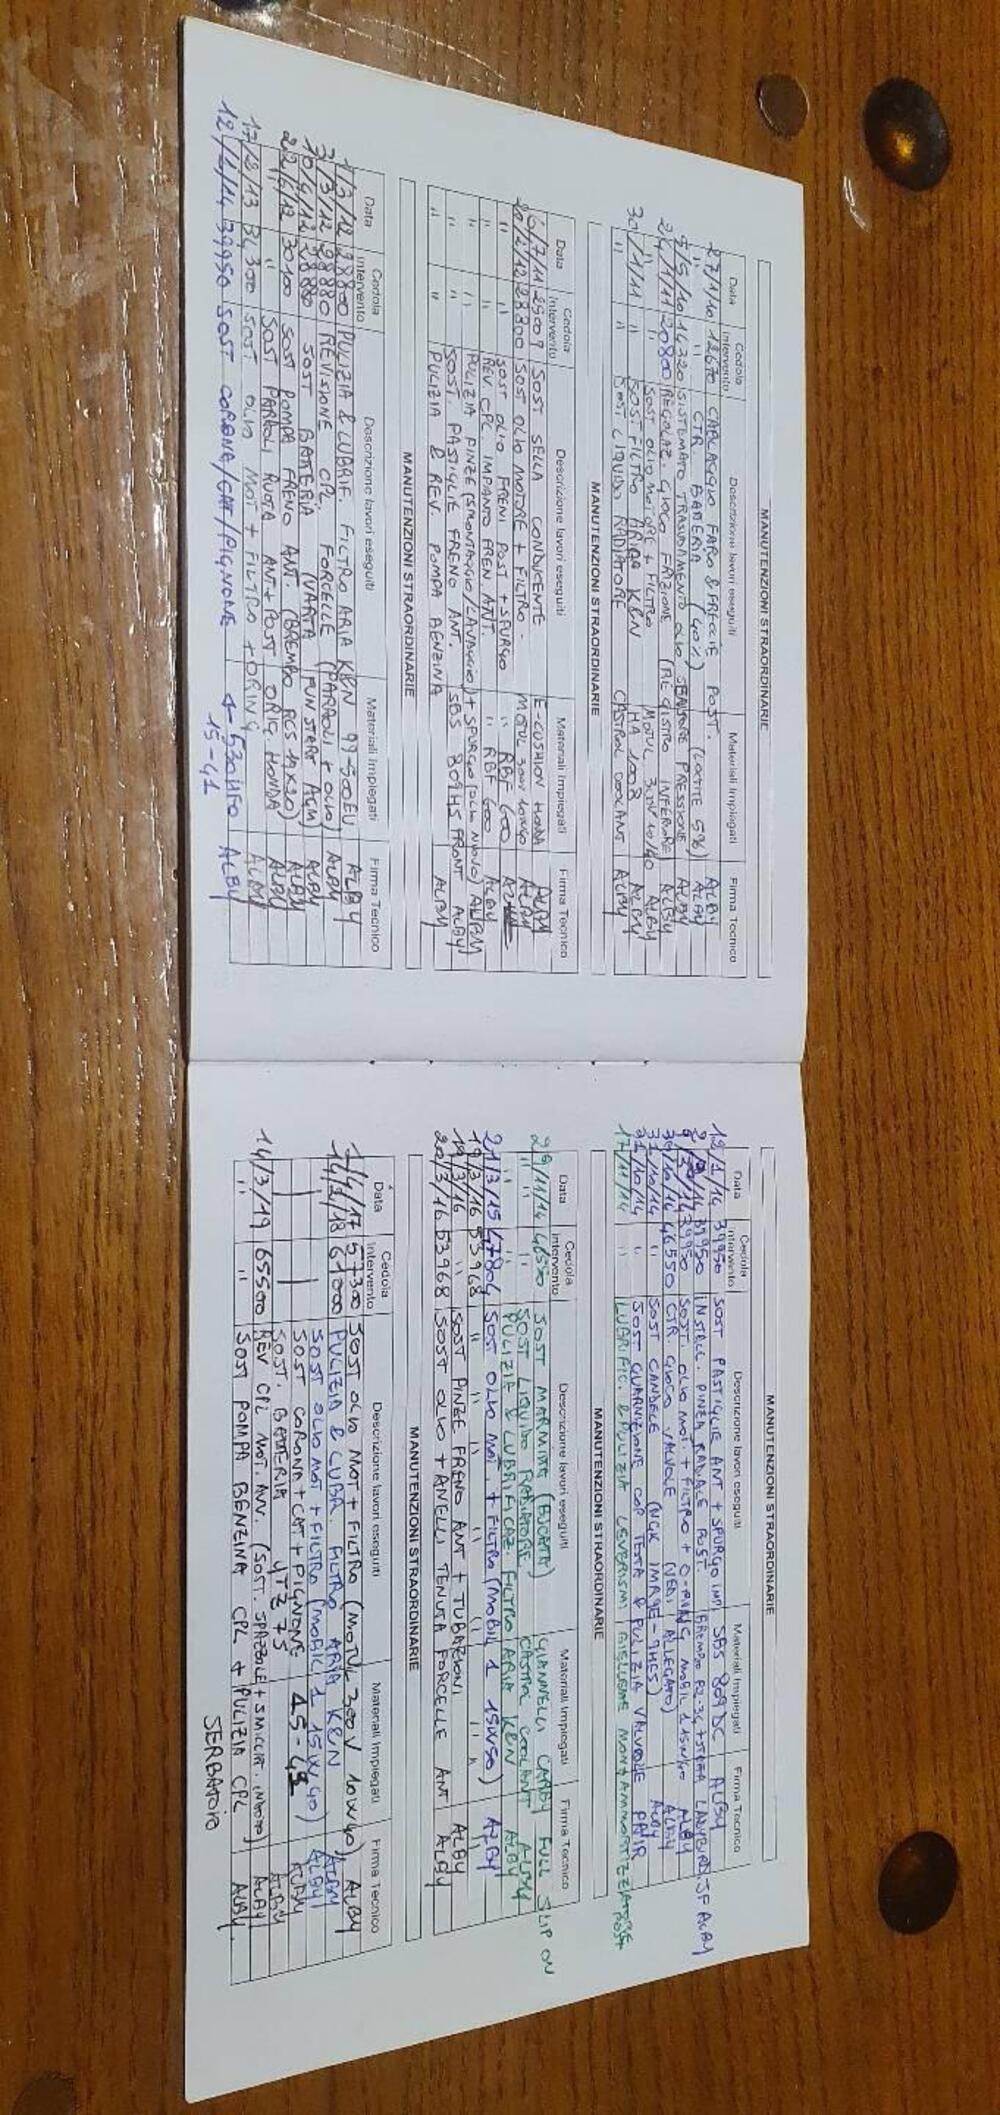 MANUTENZIONI STRAORDINARIE
Data Cedola Intervento Descrizioni lavori eseguiti Materiali Impiegati Firma Tecnico
27/1/10 12670 CABLAGGIO FARO & FRECCIE POST. ALBY
" CTR. BATTERIA (40%) (LOCTITE 5%) ALBY
5/5/10 14320 SISTEMATO TRASUDAMENTO OLIO PRESSIONE ALBY
24/1/11 20800 REGOLAZ. GIOCO FRIZIONE (REGISTRO INFERIORE) ALBY
" SOST OLIO MOTORE + FILTRO MOTUL 300V 10/40 ALBY
30/1/11 " SOST FILTRO ARIA K&N HA 1008 ALBY
" " SOST LIQUIDO RADIATORE CASTROL COOLANT ALBY
MANUTENZIONI STRAORDINARIE
Data Cedola Intervento Descrizione lavori eseguiti Materiali Impiegati Firma Tecnico
6/7/11 SOST SELLA CONDUCENTE E-CUSHION HONDA ALBY
20/2/12 28300 SOST OLIO MOTORE + FILTRO - MOTUL 300V 10W40 ALBY
" " SOST OLIO FRENI POST + SPURGO " RBF 600
" " REV CPL. IMPIANTO FREN ANT. " RBF 600 ALBY
" " PULIZIA PINZE (SMONTAGGIO/LAVAGGIO) + SPURGO (OLIO NUOVO) ALBY
" " SOST. PASTIGLIE FRENO ANT. SBS 809HS FRONT ALBY
" " PULIZIA & REV. POMPA BENZINA ALBY
MANUTENZIONI STRAORDINARIE
Data Cedola Intervento Descrizione lavori eseguiti Materiali Impiegati Firma Tecnico
1/3/12 28800 PULIZIA & LUBRIF. FILTRO ARIA K&N 99-500EU ALBY
3/3/12 28880 REVISIONE CPL. FORCELLE (PARAOLI + OLIO) ALBY
10/4/12 28880 SOST BATTERIA (VARTA FUNSTART AGM) ALBY
22/6/12 30100 SOST POMPA FRENO ANT. (BREMBO RCS 19X20) ALBY
" " SOST PARAOLI RUOTA ANT+POST ORIG. HONDA ALBY
17/2/13 34300 SOST OLIO MOT + FILTRO + ORING ALBY
12/1/14 39950 SOST CORONA/CAT/PIGNONE 530HFO ALBY
15-41
MANUTENZIONI STRAORDINARIE
Data Cedola Intervento Descrizione lavori eseguiti Materiali Impiegati Firma Tecnico
12/1/14 39950 SOST PASTIGLIE ANT + SPURGO SBS 809 DC ALBY
39950 INSTALL. PINZA RADIALE POST. BREMBO P2-34 + STAFFA ALBY
39950 SOST. OLIO MOT. + FILTRO + O-RING MOBIL 1 15W40 ALBY
30/10/14 46550 CTR. GIOCO VALVOLE (VEDI ALLEGATO) ALBY
31/10/14 " SOST CANDELE (NGK IMR9E-9HES) ALBY
31/10/14 SOST GUARNIZIONE COP TESTA & PULIZIA VALVOLE PAIR
17/11/14 " LUBRIFIC. & PULIZIA LEVERISMI BIELLISME MONOAMMORTIZZATORE POST
MANUTENZIONI STRAORDINARIE
Data Cedola Intervento Descrizione lavori eseguiti Materiali Impiegati Firma Tecnico
29/11/14 46550 SOST MARMITTA (BUCATA) GIANNELLI CARBY FULL SLIP ON
" " SOST LIQUIDO RADIATORE. CASTROL COOLANT ALBY
" " PULIZIA & LUBRIFICAZ. FILTRO ARIA K&N ALBY
21/3/15 47804 SOST OLIO MOT. + FILTRO (MOBIL 1 15W50) ALBY
19/3/16 53968 " " " " " "
19/3/16 " SOST PINZE FRENO ANT + TUBAZIONI ALBY
20/3/16 53968 SOST OLIO + ANELLI TENUTA FORCELLE ANT ALBY
MANUTENZIONI STRAORDINARIE
Data Cedola Intervento Descrizione lavori eseguiti Materiali Impiegati Firma Tecnico
1/4/17 57300 SOST OLIO MOT + FILTRO (MOTUL 300V 10W40) ALBY
61000 PULIZIA & LUBR. FILTRO ARIA K&N ALBY
SOST OLIO MOT + FILTRO (MOBIL 1 15W40) ALBY
SOST CORONA + CAT + PIGNONE ALBY
SOST. BATTERIA YTZ 7S ALBY
14/3/19 65500 REV CPL MOT. AVV. (SOST. SPAZZOLE + ALBY
" " SOST POMPA BENZINA CPL + PULIZIA CPL ALBY
SERBATOIO